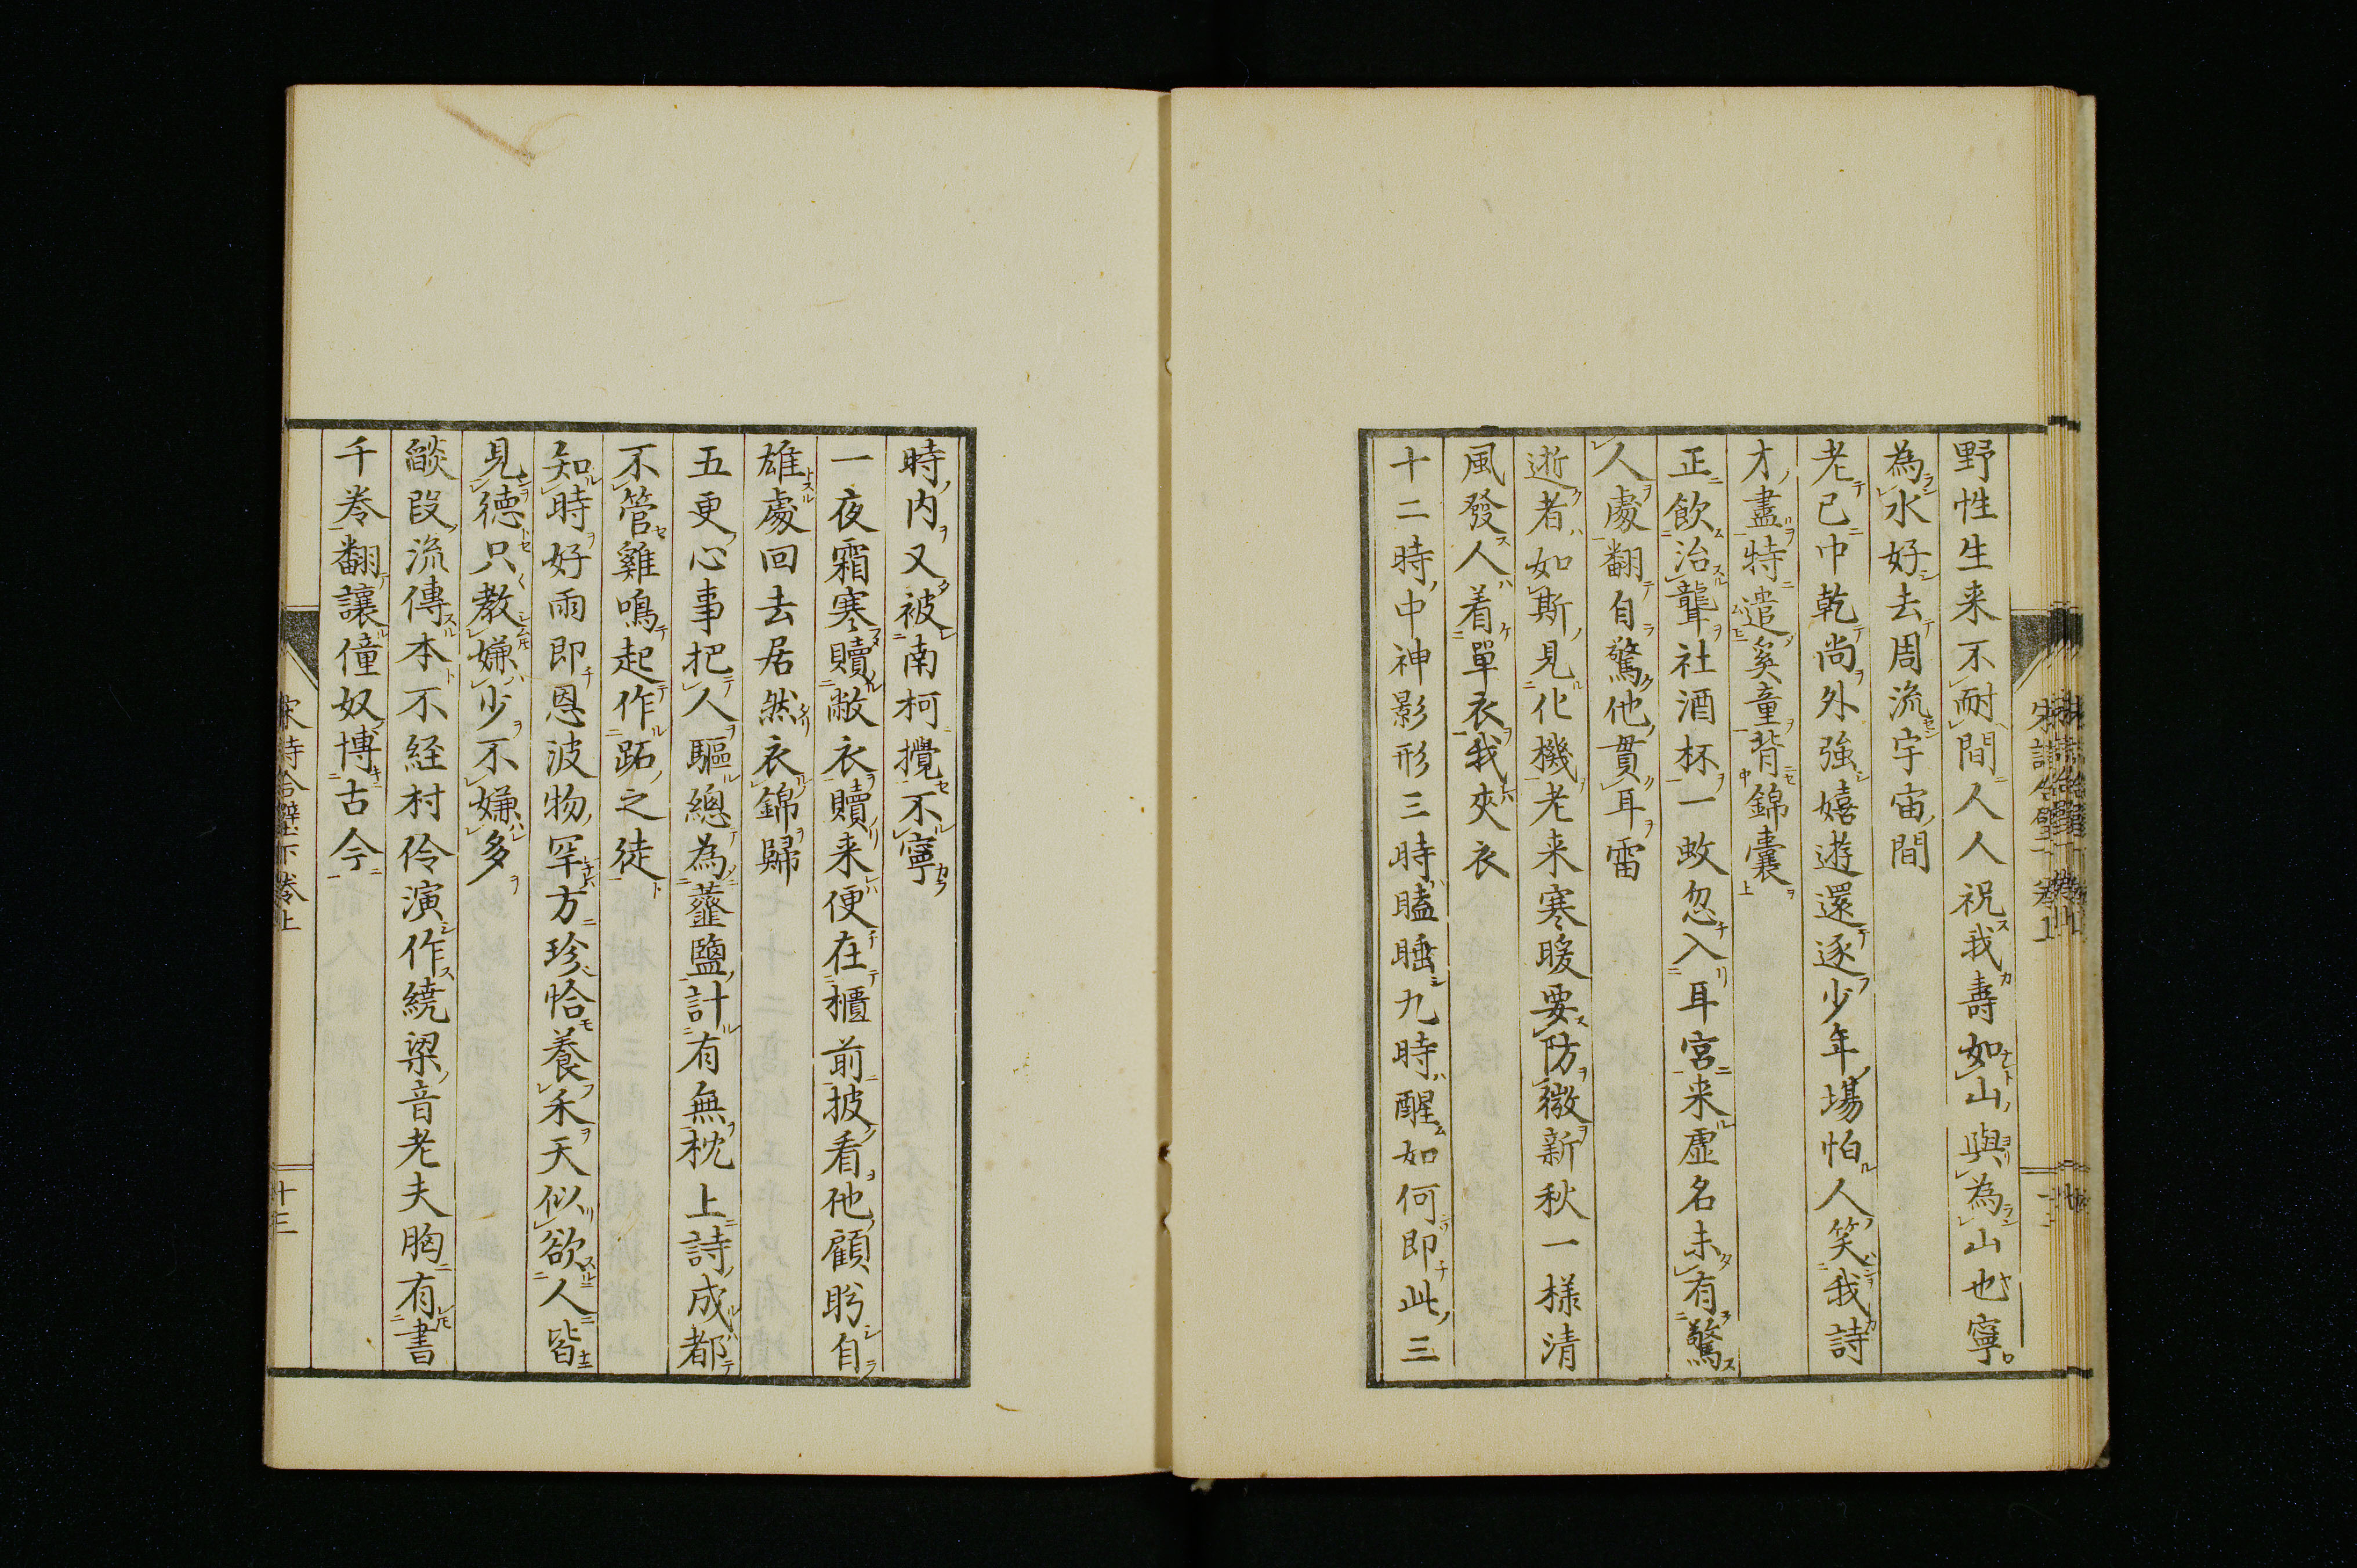 野性生来不耐間人人祝我壽如山與為山也寧
為水好去周流宇宙間
老已中乾尚外強嬉遊還逐少年場怕人笑我詩
才盡特遣奚童背錦囊
正飲治聾社酒杯一蚊忽入耳宮来虚名未有驚
人處翻自驚他貫耳雷
逝者如斯見化機老来寒暖要防微新秋一様清
風發人着單衣我夾衣
十二時中神影形三時瞌睡九時醒如何即此三
時内又被南柯攪不寧
一夜霜寒贖敝衣贖来便在櫃前披看他顧盻自
雄處回去居然衣錦歸
五更心事把人驅總為虀鹽計有無枕上詩成都
不管雞鳴起作跖之徒
知時好雨即恩波物罕方珍恰養禾天似欲人皆
見德只教嫌少不嫌多
燄段流傳本不経村伶演作繞梁音老夫胸有書
千巻翻讓僮奴博古今
十三